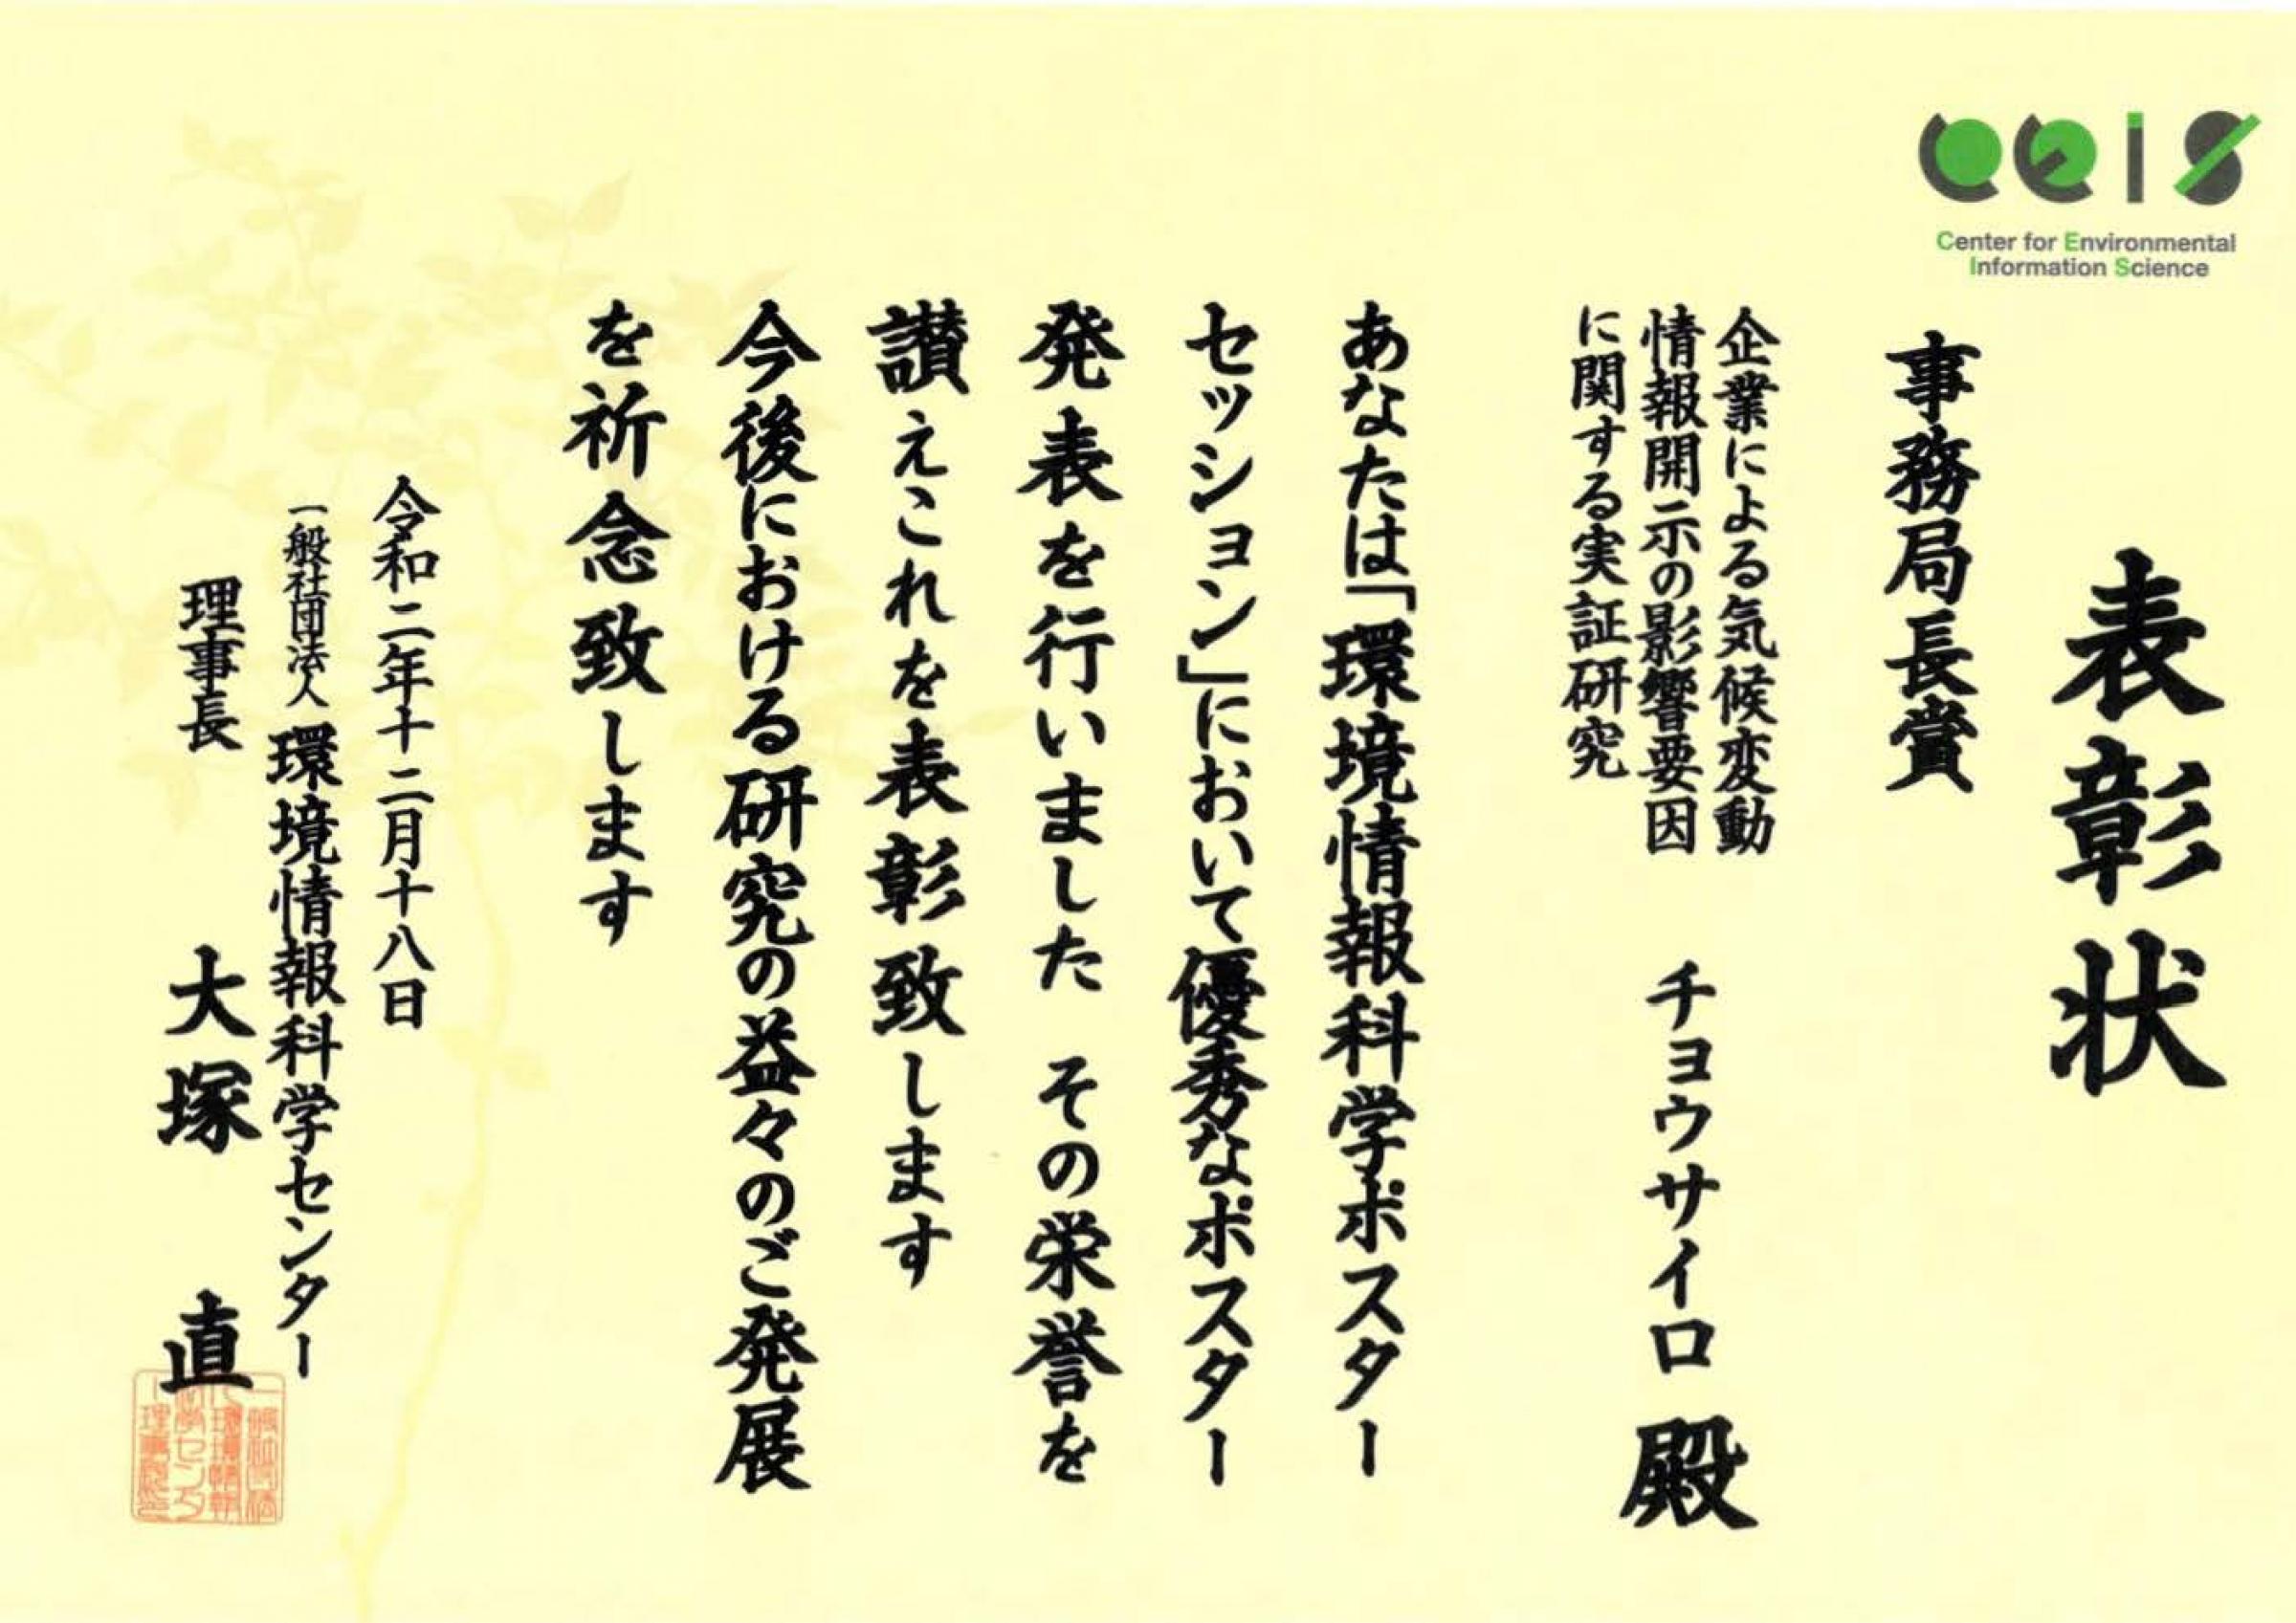 ceis
Center for Environmental
Information Science
表彰状
事務局長賞
企業による気候変動
情報開示の影響要因
に関する実証研究
チョウサイロ 殿
あなたは「環境情報科学ポスター
セッション」において優秀なポスター
発表を行いました その栄誉を
讃えこれを表彰致します
今後における研究の益々のご発展
を祈念致します
令和二年十二月十八日
一般社団法人 環境情報科学センター
理事長 大塚 直